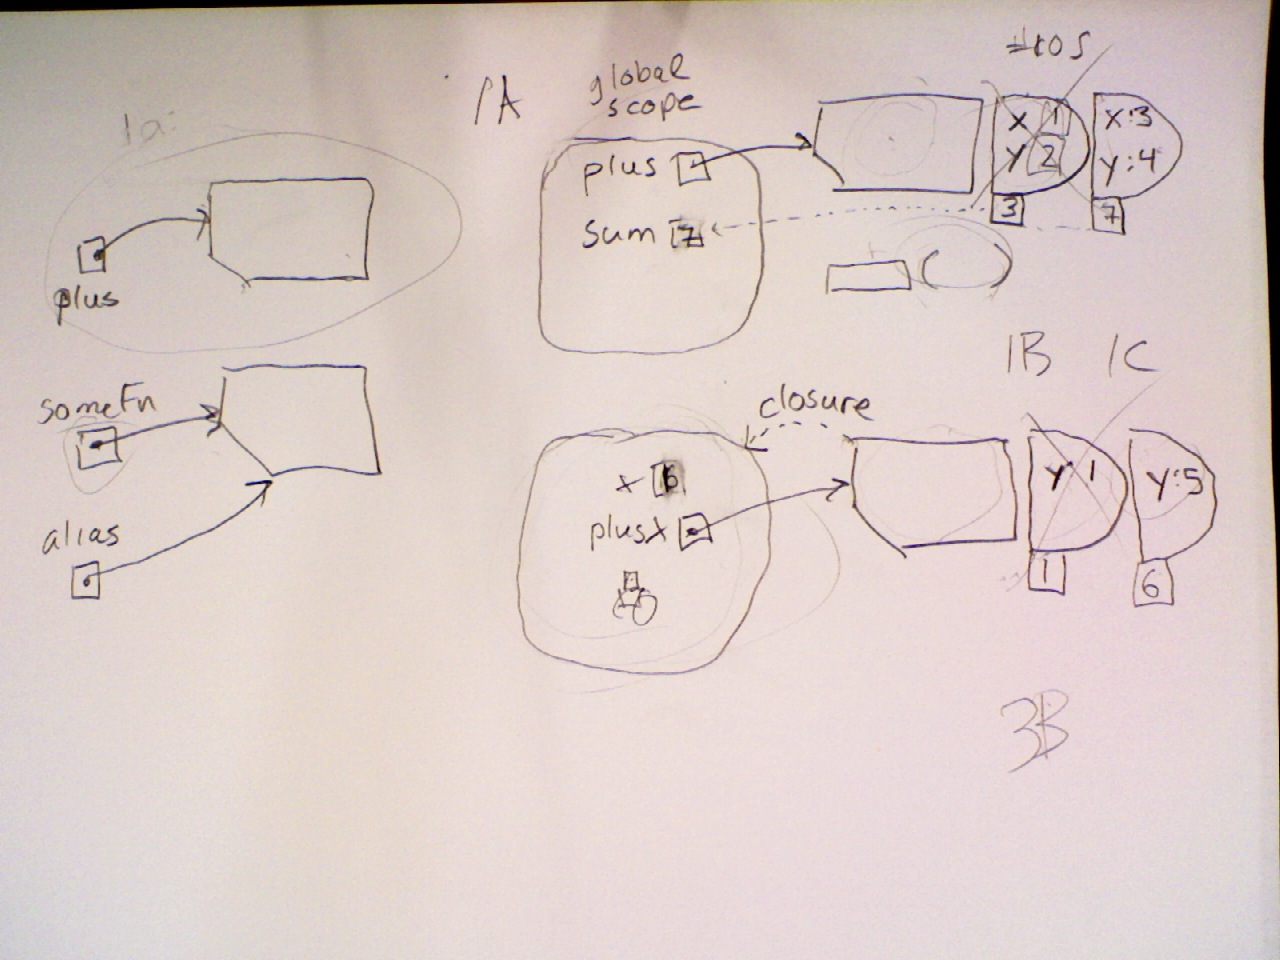 1a:
plus
someFn
alias
1A
global
scope
plus
sum 7
x 1
y 2
3
x:3
y:4
7
( )
1B
1C
closure
x 6
plusX
y:1
1
y:5
6
3B